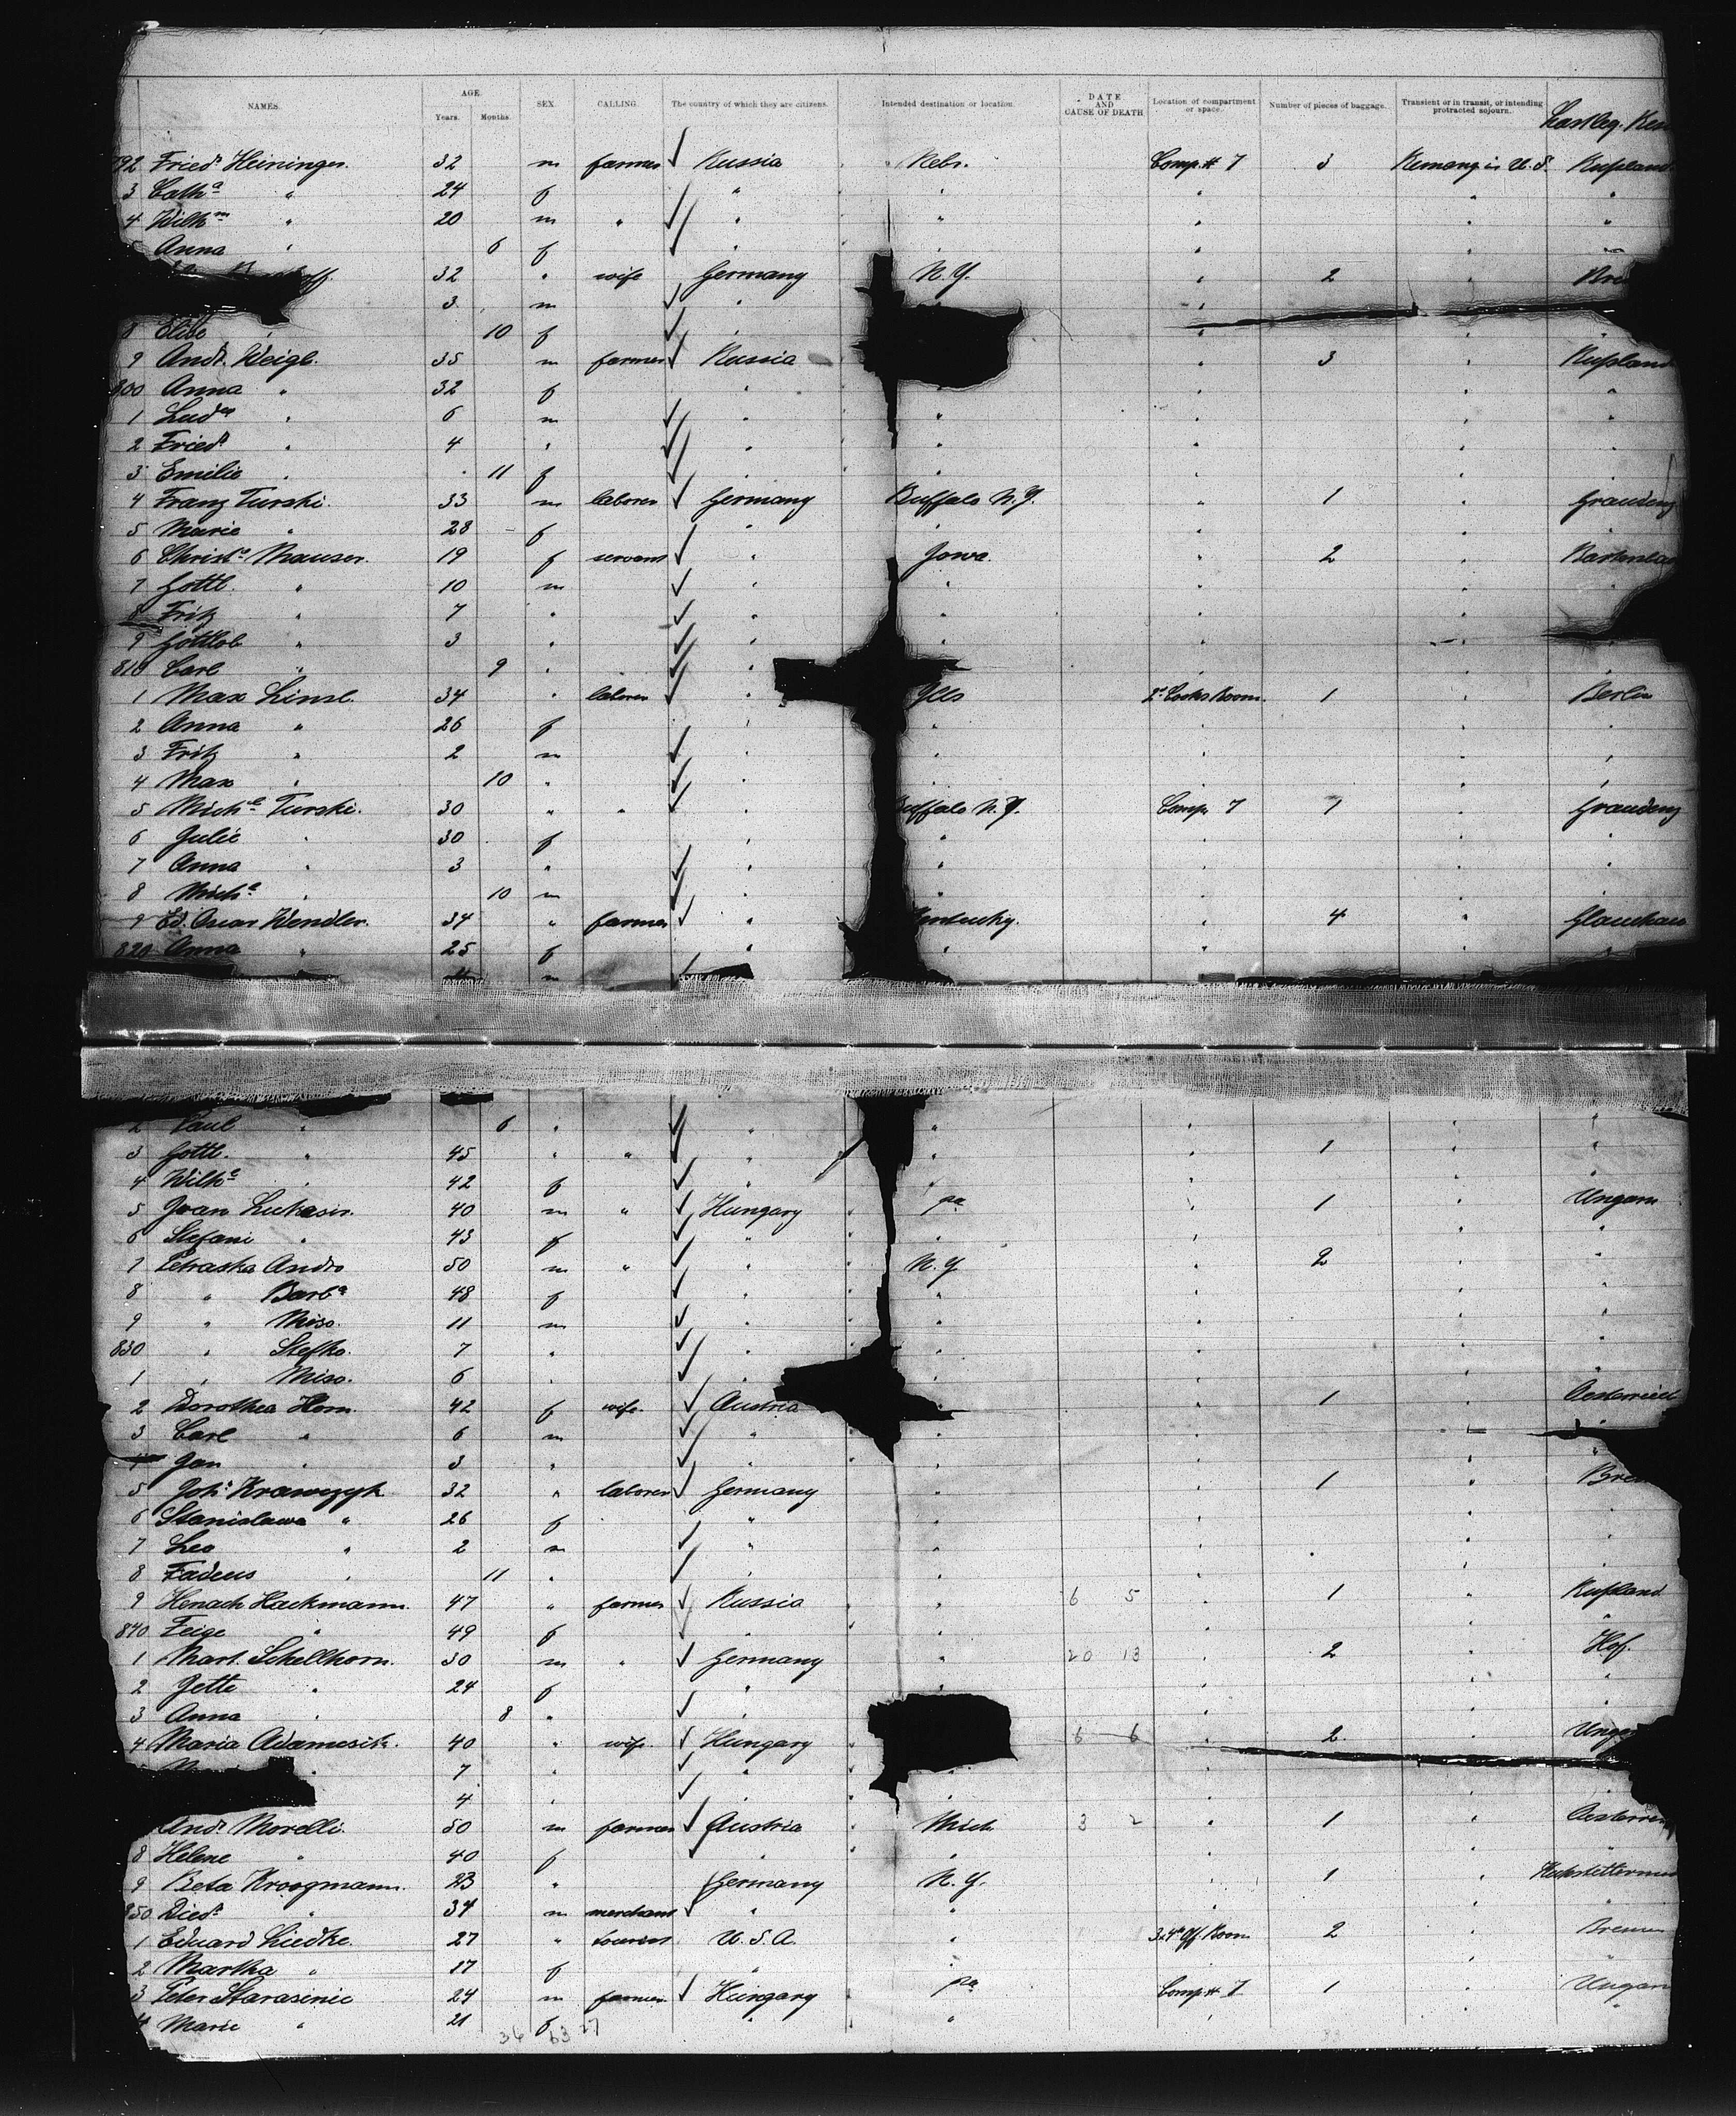 NAMES. AGE. Years. Months. SEX. CALLING. The country of which they are citizens. Intended destination or location. DATE AND CAUSE OF DEATH Location of compartment or space. Number of pieces of baggage. Transient or in transit, or intending protracted sojourn.
792 Friedr Heininger. 32 m farmer ✓ Russia " Nebr. Comp. # 7 3 Remang in U.S. Rußland
3 Catha " 24 f ✓ " " " " "
4 Wilhm " 20 m " ✓ " " " " "
Anna " 6 f ✓ " " " " "
32 " wife Germany N.Y. " 2 " Bre
3 m ✓ " "
8 Elise " 10 f ✓ " " "
9 Andr. Weigl. 35 m farmer ✓ Russia " 3 " Rußland
800 Anna " 32 f " " " " "
1 Ludw " 6 m ✓ " " " " "
2 Friedr " 4 " ✓ " " " " "
3 Emilie " 11 f ✓ " " " " "
4 Franz Turski. 33 m laborer ✓ Germany Buffalo N.Y. " 1 " Graudenz
5 Marie " 28 f " " " " "
6 Christe Mauser. 19 f servant ✓ " Iowa. " 2 "
7 Gottl. " 10 m ✓ " " " " "
8 Fritz " 7 " ✓ " " " "
9 Gottlob " 3 " ✓ " " " " "
810 Carl " 9 " ✓ " " " "
1 Max Linse. 34 " laborer ✓ " Ills 2d Cooks Room. 1 " Berlin
2 Anna " 26 f " " " " "
3 Fritz " 2 m ✓ " " " " "
4 Max " 10 " ✓ " " " " "
5 Michl Turski. 30 " " ✓ " uffalo N.Y. Comp. 7 1 " Graudenz
6 Julie " 30 f " " " " "
7 Anna " 3 " ✓ " " " " "
8 Michl " 10 m ✓ " " " " "
9 Ed. Oscar Wendler. 34 " farmer ✓ " entucky. " 4 " Glauchau
820 Anna " 25 f " " " " "
4 m ✓
2 Paul " 6 " ✓ " " " " "
3 Gottl. " 45 " " ✓ " " " 1 " "
4 Wilhe " 42 f ✓ " " " "
5 Ivan Lukasin. 40 m " ✓ Hungary " pa " 1 " Ungarn
6 Stefani " 43 f ✓ " " " " "
7 Petraska Andro 50 m " ✓ " " N.Y " 2 " "
8 " Barba 48 f ✓ " " " " "
9 " Miso. 11 m ✓ " " " " "
830 " Stefko. 7 " ✓ " " " " "
1 " Miso. 6 " ✓ " " " "
2 Dorothea Horn. 42 f wife. ✓ Austria " 1 " Oesterreich
3 Carl " 6 m ✓ " " " "
4 Jan " 3 " ✓ " " " " "
5 Johs Krawczyk 32 " laborer ✓ Germany " " 1 " Bre
6 Stanislawa " 26 f " " " " "
7 Leo " 2 m ✓ " " " " "
8 Fadeus " 11 " ✓ " " " " "
9 Henach Hackmann. 47 " farmer ✓ Russia " " 6 5 " 1 " Rußland
840 Feige " 49 f ✓ " " " " "
1 Mart. Schellhorn. 30 m " ✓ Germany " 20 13 " 2 " Hof.
2 Jette " 24 f " " " " "
3 Anna " 8 " ✓ " " " "
4 Maria Adamcsik. 40 " wife. ✓ Hungary " 6 6 " 2. " Ungar
7 " ✓ " " "
4 " ✓ " " " "
Andr. Morelli. 50 m farmer ✓ Austria " Mich 3 2 " 1 " Oesterrei
8 Helene " 40 f " " " " "
9 Beta Kroogmann. 23 " Germany N.Y. " 1 "
850 Diedr " 34 m merchant ✓ " " " " "
1 Eduard Liedke. 27 " tourist U.S.A. " 3 & 4th Off. Room 2 " Bremen
2 Martha " 17 f " " " "
3 Peter Starasinic 24 m farmer ✓ Hungary " pa Comp. # 7 1 " Ungarn
4 Marie " 21 f " " " " "
36 63 27 33